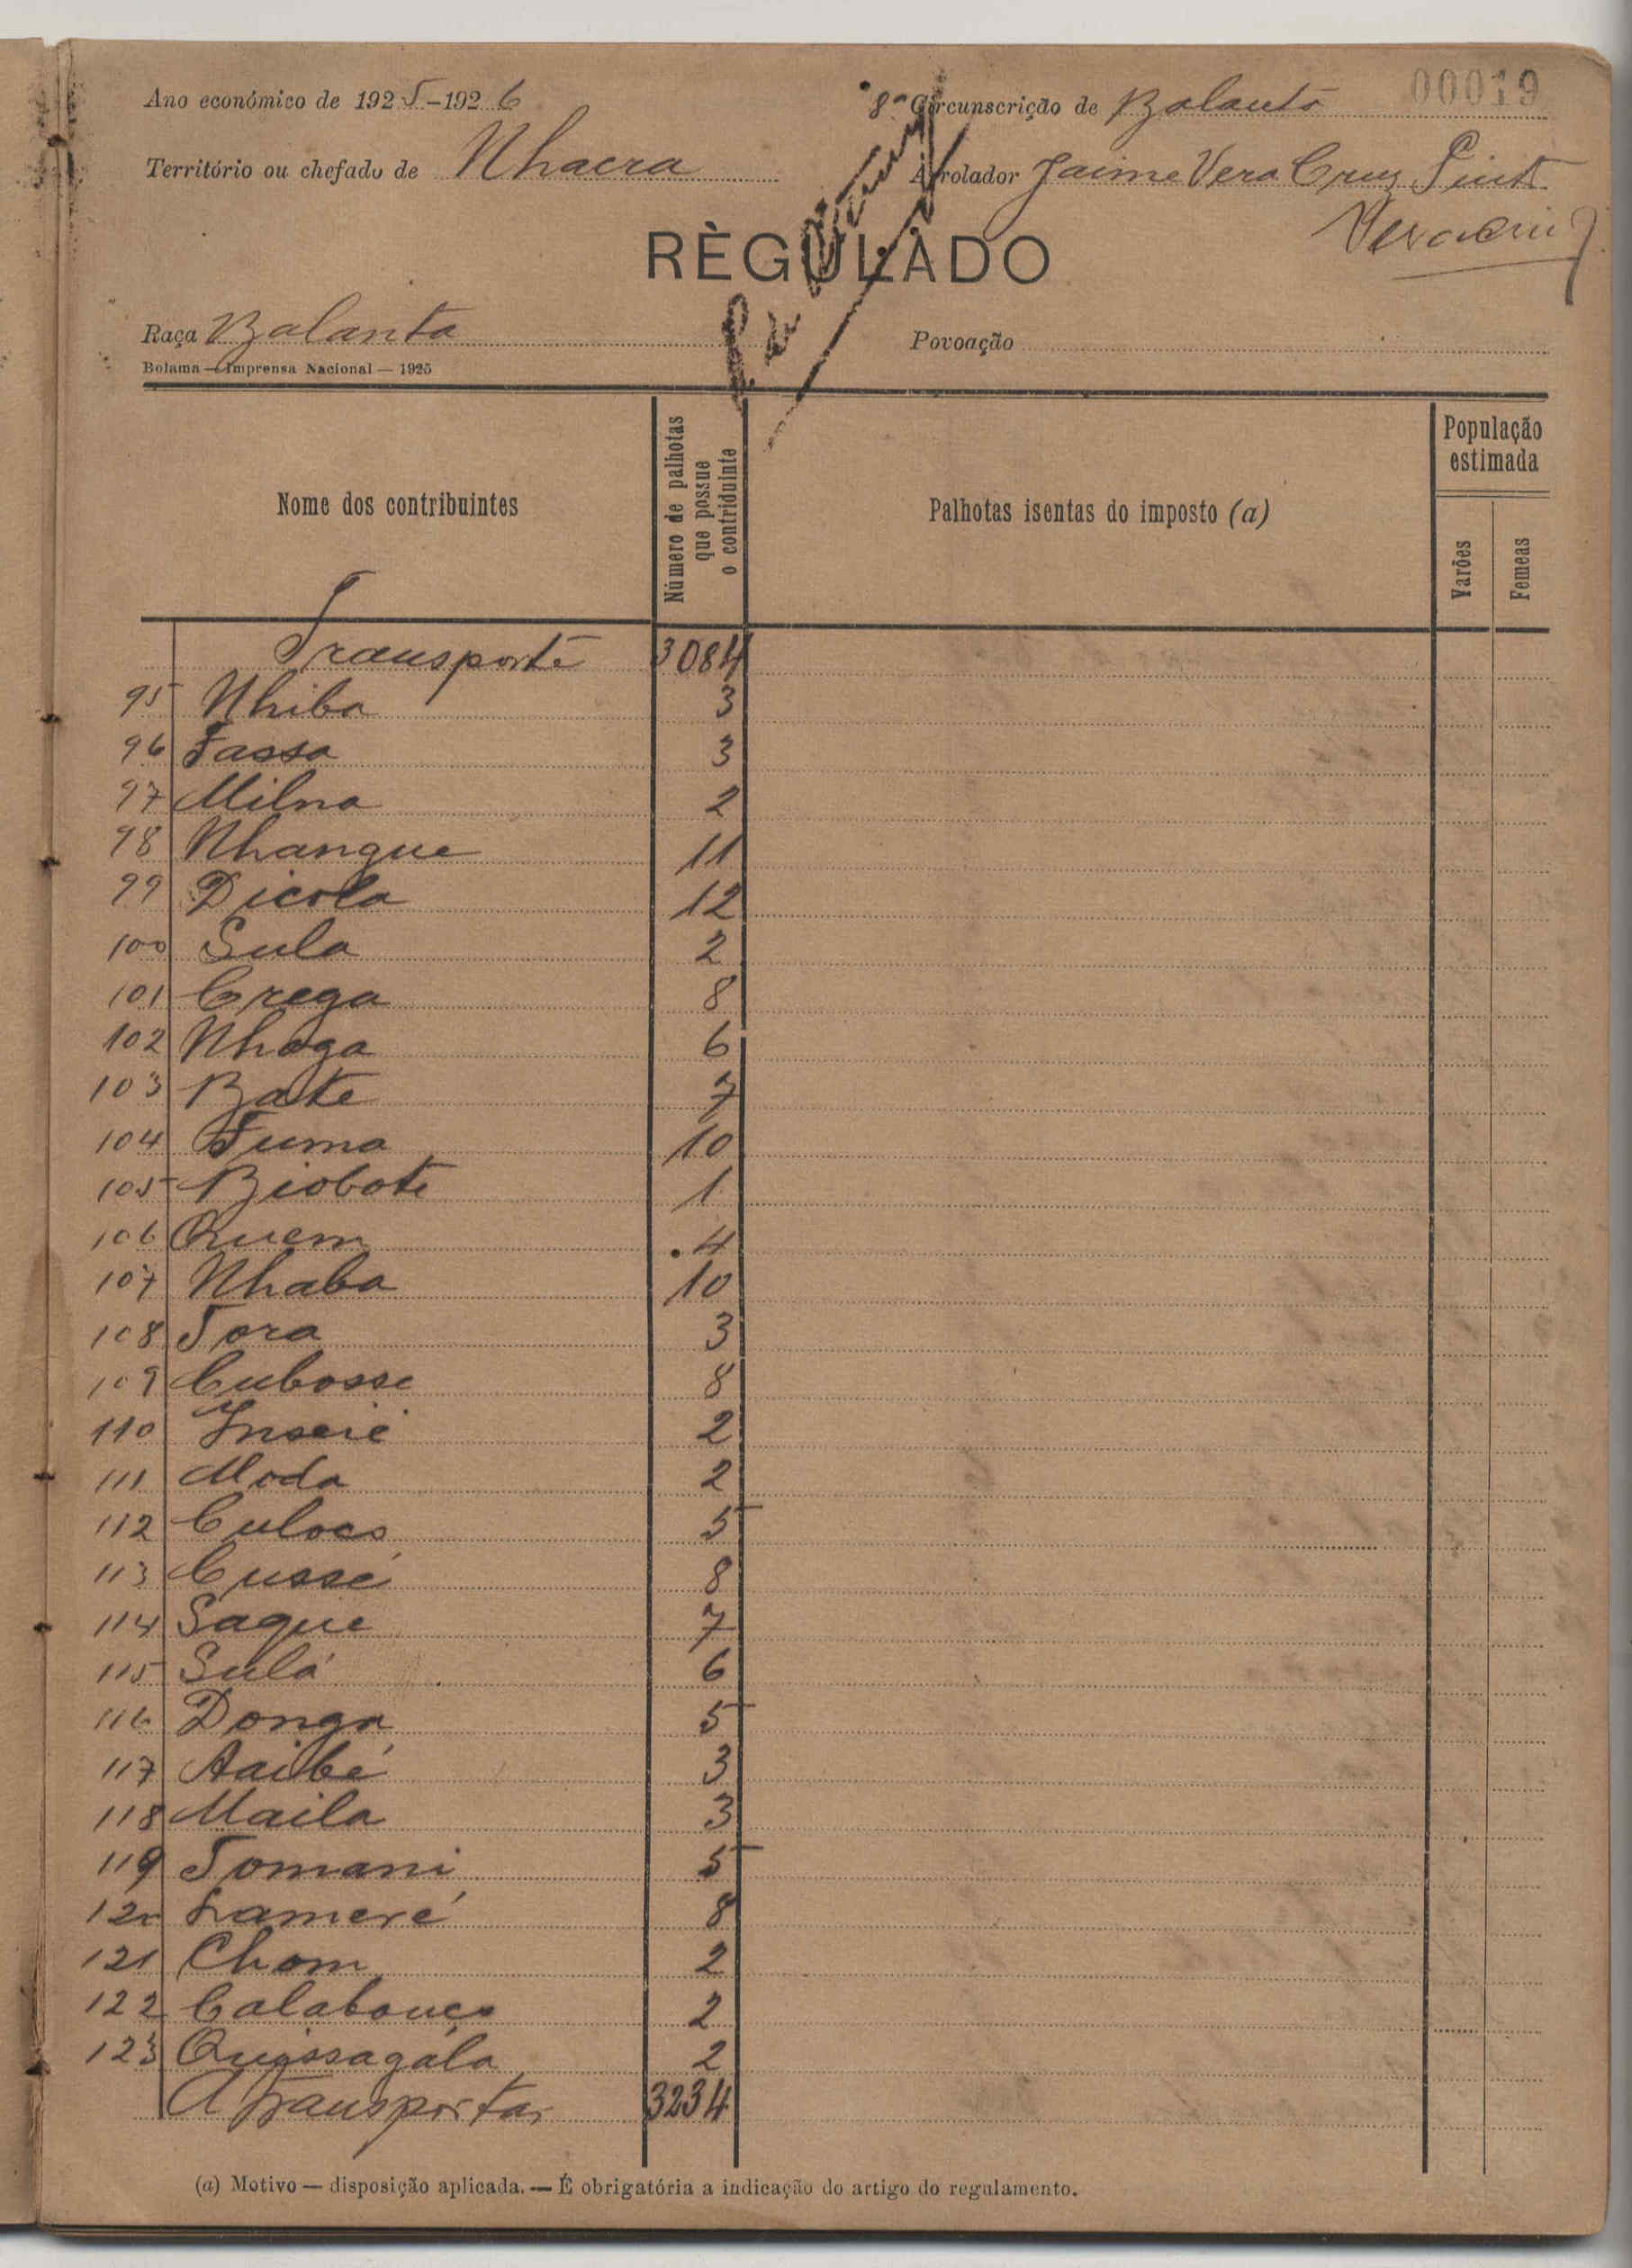 00019
Ano económico de 1925-1926
8ª Circunscrição de Balanta
Território ou chefado de Nhacra
Arrolador Jaime Vera Cruz Pinto
RÈGULADO
Raça Balanta
Povoação
Bolama — Imprensa Nacional — 1925
Nome dos contribuintes
Número de palhotas que possue o contriduinte
Palhotas isentas do imposto (a)
População estimada
Varões
Femeas
Transporte 3084
95 Nhiba 3
96 Fassa 3
97 Milna 2
98 Nhangue 11
99 Dicola 12
100 Sula 2
101 Crega 8
102 Nhaga 6
103 Bate 7
104 Fuma 10
105 Biobote 1
106 Quem 4
107 Nhaba 10
108 Tora 3
109 Cubosse 8
110 2
111 Moda 2
112 5
113 Cussé 8
114 Sague 7
115 Sulá 6
116 Donga 5
117 Aaibé 3
118 Maila 3
119 Tomani 5
120 Lameré 8
121 Chom 2
122 Calabouço 2
123 Quissagála 2
A transportar 3234
(a) Motivo — disposição aplicada. — É obrigatória a indicação do artigo do regulamento.